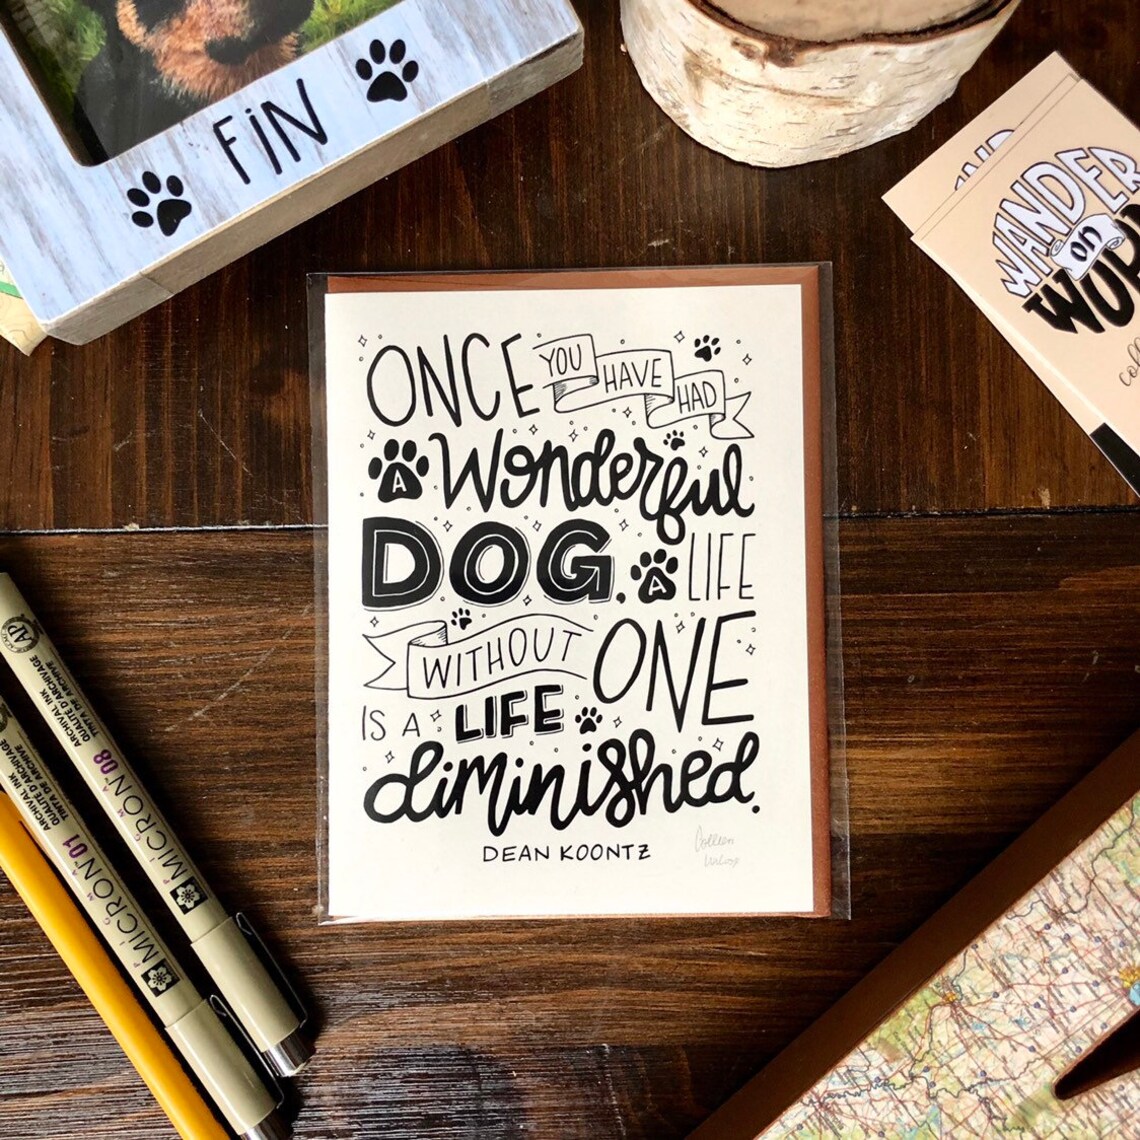 FiN
WANDER
on
ONCE YOU HAVE HAD
A Wonderful
DOG. A LIFE
WITHOUT ONE
IS A LIFE
diminished.
DEAN KOONTZ
Colleen
MICRON 08
ARCHIVAL INK
QUALITÉ D'ARCHIVE
TINTA DE ARCHIVE
MICRON 01
ARCHIVAL INK
QUALITÉ D'ARCHIVE
TINTA DE ARCHIVE
AP